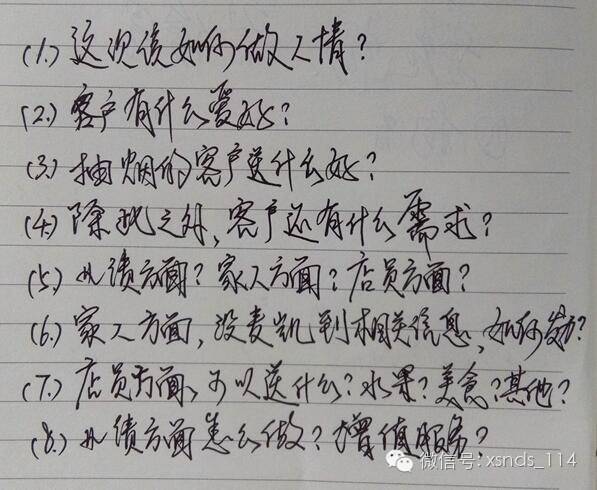 (1.) 这次该如何做人情?
(2.) 客户有什么爱好?
(3.) 抽烟的客户送什么好?
(4.) 除此之外,客户还有什么需求?
(5.) 业绩方面?家人方面?店员方面?
(6.) 家人方面,没麦凯到相关信息,如何发力?
(7.) 店员方面,可以送什么?水果?美食?其他?
(8.) 业绩方面怎么做?增值服务?
微信号: xsnds_114